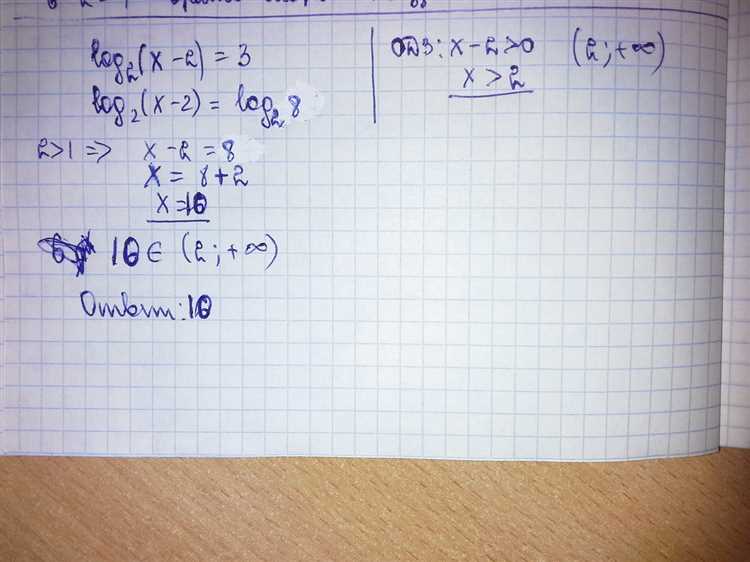 log₂(x-2) = 3
log₂(x-2) = log₂8
2>1 => x-2 = 8
x = 8+2
x=10
10 ∈ (2; +∞)
Ответ: 10
ОДЗ: x-2>0 (2; +∞)
x > 2